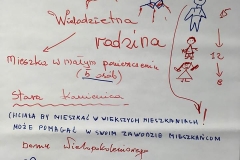 Wielodzietna
rodzina
15
Mieszka w małym pomieszczeniu
(5 osób)
12
8
Stara Kamienica
(CHCIAŁA BY MIESZKAĆ W WIĘKSZYCH MIESZKANIACH
MOŻE POMAGAĆ W SWIM ZAWODZIE MIESZKAŃCOM
domu Wielopokoleniowego